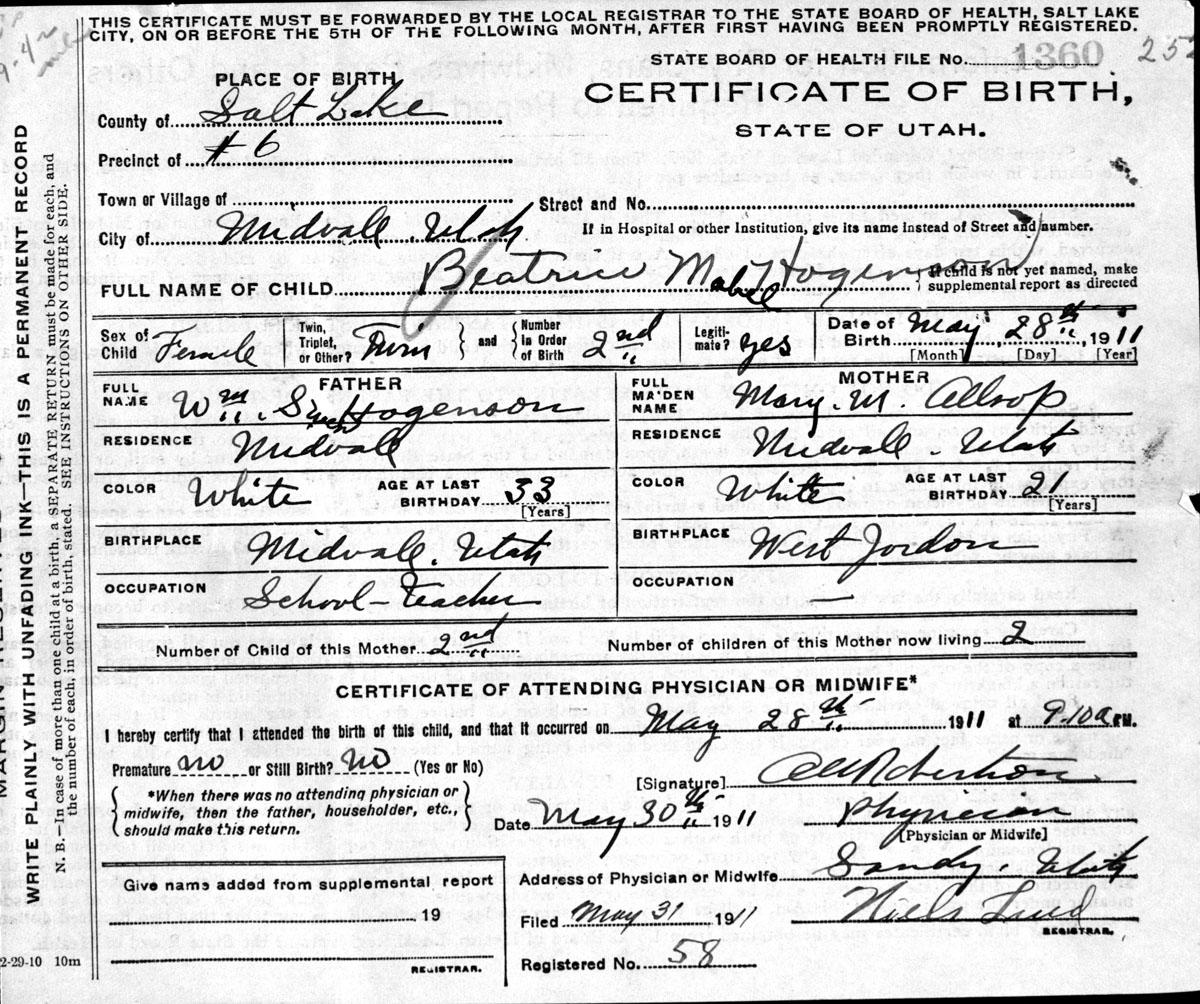 THIS CERTIFICATE MUST BE FORWARDED BY THE LOCAL REGISTRAR TO THE STATE BOARD OF HEALTH, SALT LAKE
CITY, ON OR BEFORE THE 5TH OF THE FOLLOWING MONTH, AFTER FIRST HAVING BEEN PROMPTLY REGISTERED.
STATE BOARD OF HEALTH FILE No. 1360
252
PLACE OF BIRTH
CERTIFICATE OF BIRTH,
STATE OF UTAH.
County of Salt Lake
Precinct of #6
Town or Village of
Street and No.
City of Midvale Utah
If in Hospital or other Institution, give its name instead of Street and number.
FULL NAME OF CHILD Beatrice Mabel Hogenson
If child is not yet named, make
supplemental report as directed
Sex of Child Female
Twin, Triplet, or Other? Twin
and Number in Order of Birth 2nd
Legiti-mate? yes
Date of Birth May, 28th, 1911
[Month] [Day] [Year]
FATHER
FULL NAME Wm. Hogenson
RESIDENCE Midvale
COLOR White AGE AT LAST BIRTHDAY 33
[Years]
BIRTHPLACE Midvale. Utah
OCCUPATION School-teacher
MOTHER
FULL MAIDEN NAME Mary. M. Allsop
RESIDENCE Midvale. Utah
COLOR White AGE AT LAST BIRTHDAY 21
[Years]
BIRTHPLACE West Jordon
OCCUPATION —
Number of Child of this Mother 2nd Number of children of this Mother now living 2
CERTIFICATE OF ATTENDING PHYSICIAN OR MIDWIFE*
I hereby certify that I attended the birth of this child, and that it occurred on May 28th 1911 at 9.10a M.
Premature no or Still Birth? No (Yes or No)
*When there was no attending physician or
midwife, then the father, householder, etc.,
should make this return.
[Signature] Robertson
Date May 30th 1911 Physician
[Physician or Midwife]
Give name added from supplemental report
19
REGISTRAR.
Address of Physician or Midwife Sandy. Utah
Filed May 31 1911 Niels Lind
REGISTRAR.
Registered No. 58
2-29-10 10m
WRITE PLAINLY WITH UNFADING INK—THIS IS A PERMANENT RECORD
N. B.—In case of more than one child at a birth, a SEPARATE RETURN must be made for each, and
the number of each, in order of birth, stated. SEE INSTRUCTIONS ON OTHER SIDE.